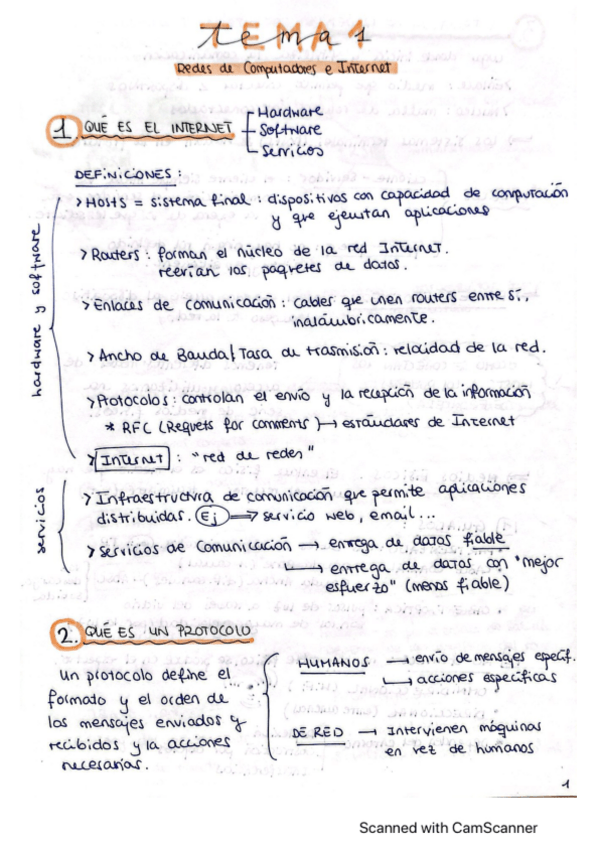 tema 1
TEMA 1
Redes de Computadores e Internet
1. QUÉ ES EL INTERNET
Hardware
Software
Servicios
DEFINICIONES:
hardware y software
> HOSTS = sistema final : dispositivos con capacidad de computación
y que ejecutan aplicaciones
> Routers : forman el núcleo de la red Internet.
reevían los paquetes de datos.
> Enlaces de comunicación : cables que unen routers entre sí,
inalámbricamente.
> Ancho de Banda / Tasa de trasmisión : velocidad de la red.
> Protocolos : controlan el envío y la recepción de la información
* RFC (Requets for comments) → estándares de Internet
> Internet : "red de redes"
servicios
> Infraestructura de comunicación que permite aplicaciones
distribuidas. Ej ⇒ servicio web, email...
> Servicios de Comunicación → entrega de datos fiable
→ entrega de datos con "mejor
esfuerzo" (menos fiable)
2. QUÉ ES UN PROTOCOLO
Un protocolo define el
formato y el orden de
los mensajes enviados y
recibidos y la acciones
necesarias.
HUMANOS → envío de mensajes específ.
→ acciones específicas
DE RED → Intervienen máquinas
en vez de humanos
1
Scanned with CamScanner